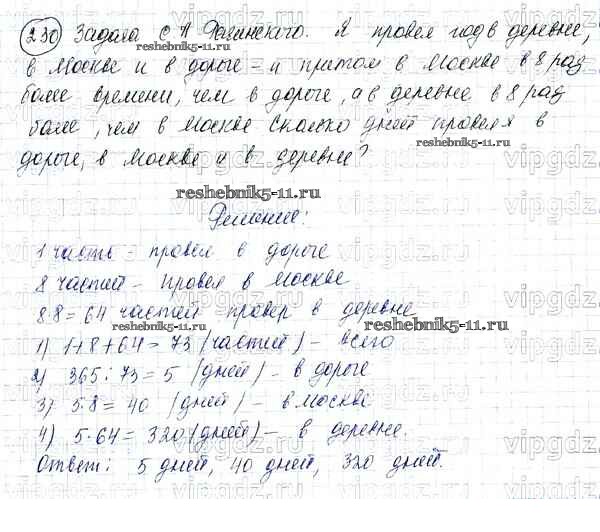 230 Задача С А Рачинского. Я провел год в деревне,
reshebnik5-11.ru
в Москве и в дороге - и притом в Москве в 8 раз
более времени, чем в дороге, а в деревне в 8 раз
более, чем в Москве. Сколько дней провел я в
дороге, в Москве и в деревне?
vipgdz.ru
reshebnik5-11.ru
Решение:
1 часть - провел в дороге
8 частей - провел в Москве
8·8=64 частей провел в деревне
reshebnik5-11.ru
reshebnik5-11.ru
1) 1+8+64=73 (частей) - всего
2) 365:73=5 (дней) - в дороге
3) 5·8=40 (дней) - в Москве
4) 5·64=320 (дней) - в деревне.
Ответ: 5 дней, 40 дней, 320 дней.